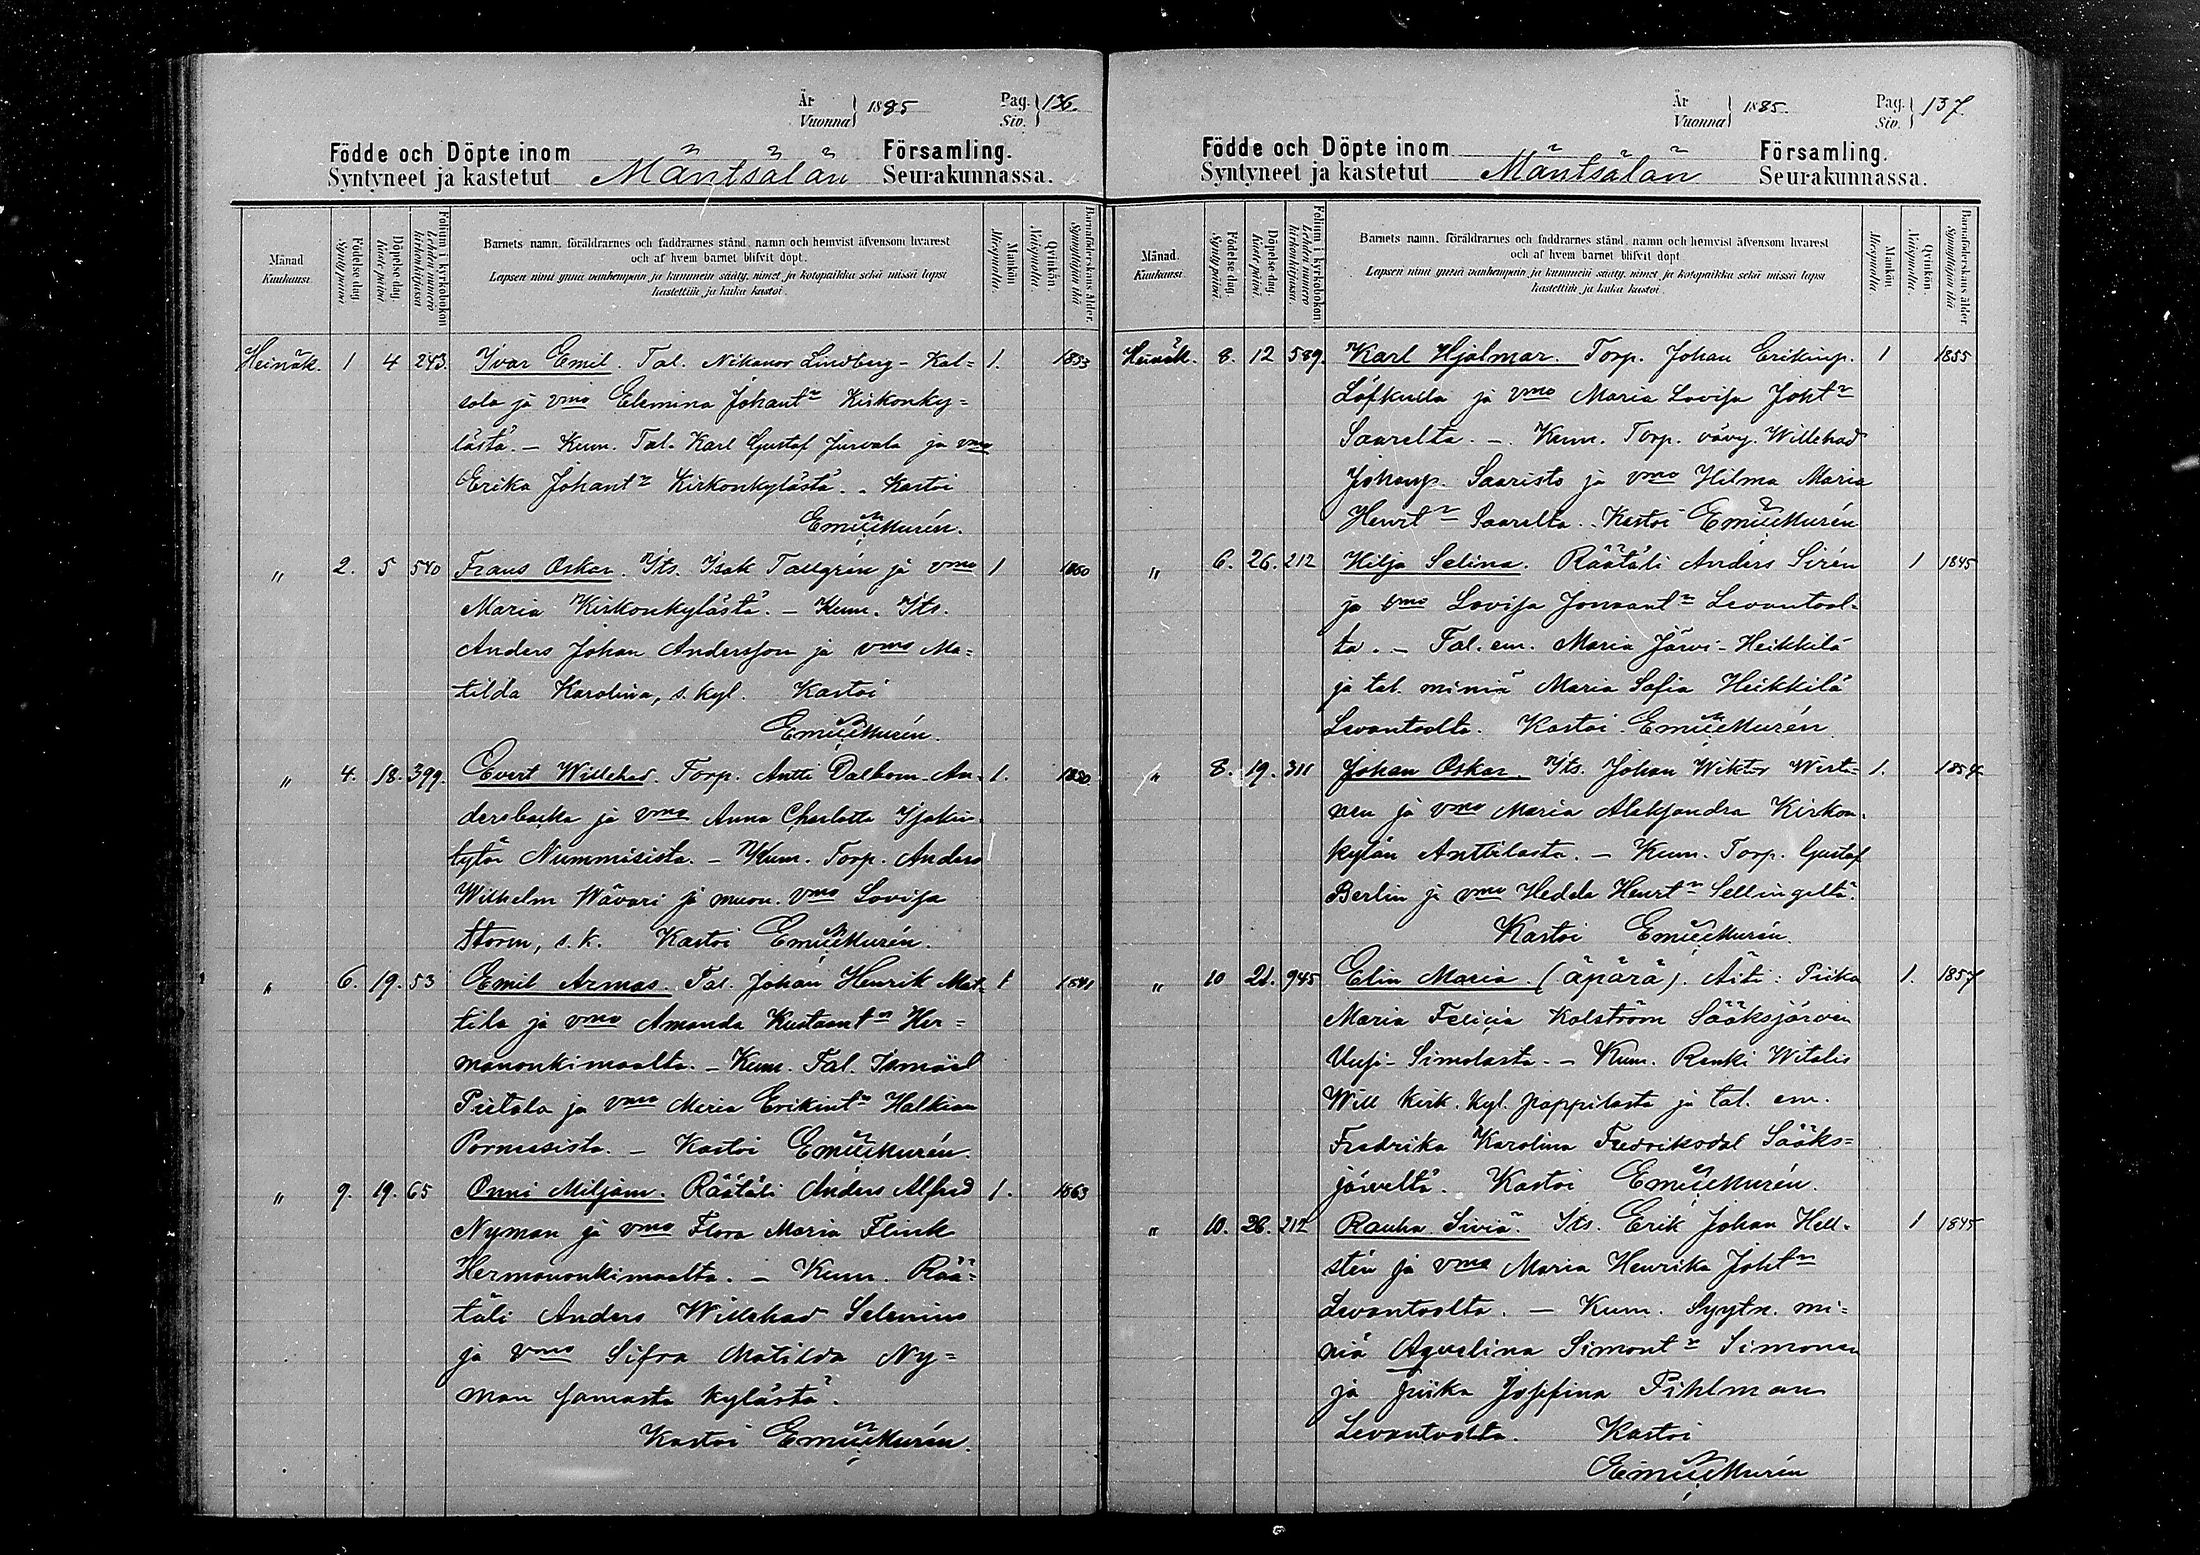 År
Vuonna } 1885 Pag.
Siv. } 136.
Födde och Döpte inom Församling.
Syntyneet ja kastetut Mäntsälän Seurakunnassa.
Månad
Kuukausi.
Födelse-dag.
Synty päivä.
Döpelse-dag.
Kaste päivä.
Folium i kyrkoboken
Lehden numero kirkonkirjassa
Barnets namn, föräldrarnes och faddrarnes stånd, namn och hemvist äfvensom hvarest
och af hvem barnet blifvit döpt.
Lapsen nimi ynnä vanhempain ja kummein sääty, nimet ja kotopaikka sekä missä lapsi
kastettiin ja kuka kastoi.
Mankön
Miespuolia.
Qvinkön.
Naispuolia.
Barnaföderskans ålder.
Synnyttäjän ikä
Heinäk. 1 4 243. Ivar Emil. Tal. Nikanor Lindberg-Kal= 1. 1853
sola ja vmo Elemina Johantr Kirkonky=
lästä. - Kum. Tal. Karl Gustaf Jurvala ja vmo
Erika Johantr Kirkonkylästä. . Kastoi
Emil Murén.
" 2. 5 540 Frans Oskar. Its. Isak Tallgrén ja vmo 1 1860
Maria Kirkonkylästä. - Kum. Its.
Anders Johan Andersson ja vmo Ma=
tilda Karolina, s. kyl. Kastoi
Emil Murén.
" 4. 18. 399. Evert Willehad. Torp. Antti Dalbom An- 1. 1850.
dersbacka ja vmo Anna Charlotta Isakin
tytär Nummisista. - Kum. Torp. Anders
Wilhelm Wävari ja muon. vmo Lovisa
Storm, s. k. Kastoi Emil Murén.
" 6. 19. 53 Emil Armas. Tal. Johan Henrik Mat- 1 1841
tila ja vmo Amanda Kustaantr Her=
manonkimaalta. - Kum. Tal. Ismael
Pietola ja vmo Maria Erikintr Halkian
Pornaisista. - Kastoi Emil Murén.
" 9. 19. 65 Onni Miljam. Räätäli Anders Alfred 1. 1863
Nyman ja vmo Flora Maria Flink
Hermanonkimaalta. - Kum. Rää=
täli Anders Willehad Selenius
ja vmo Sifra Matilda Ny=
man samasta kylästä.
Kastoi Emil Murén.
År
Vuonna } 1885. Pag.
Siv. } 137
Födde och Döpte inom Församling.
Syntyneet ja kastetut Mäntsälän Seurakunnassa.
Månad.
Kuukausi.
Födelse-dag.
Synty päivä.
Döpelse-dag.
Kaste päivä.
Folium i kyrkoboken
Lehden numero kirkonkirjassa.
Barnets namn, föräldrarnes och faddrarnes stånd, namn och hemvist äfvensom hvarest
och af hvem barnet blifvit döpt.
Lapsen nimi ynnä vanhempain ja kummein sääty, nimet ja kotopaikka sekä missä lapsi
kastettiin ja kuka kastoi.
Mankön
Miespuolia.
Qvinkön.
Naispuolia.
Barnaföderskans ålder
Synnyttäjän ikä
Heinäk. 8. 12 589. Karl Hjalmar. Torp. Johan Erikinp. 1 1855
Löfkulla ja vmo Maria Lovisa Johtr
Saarelta. - Kum. Torp. vävy. Willehad
Johanp. Saaristo ja vmo Hilma Maria
Henrtr Saarelta. . Kastoi Emil Murén
" 6. 26. 212 Hilja Selina. Räätäli Anders Sirén 1 1845
ja vmo Lovisa Jonaantr Levantool-
ta. - Tal. em. Maria Järvi-Heikkilä
ja tal. miniä Maria Sofia Heikkilä
Levantoolta. Kastoi Emil Murén.
" 8. 19. 311 Johan Oskar. Its. Johan Wiktor Wirta- 1. 1854
nen ja vmo Maria Aleksandra Kirkon-
kylän Anttilasta. - Kum. Torp. Gustaf
Berlin ja vmo Hedda Henrtr Sellingeltä.
Kastoi Emil Murén.
" 10 21. 945 Elin Maria. (äpärä). Äiti: Piika 1. 1857
Maria Felicia Kalström Sääksjärven
Uusi-Simolasta. - Kum. Renki Witalis
Will Kirk. kyl. pappilasta ja tal. em.
Fredrika Karolina Fredriksdal Sääks=
järveltä. Kastoi Emil Murén.
" 10. 26. 212 Rauha Siviä. Its. Erik Johan Hell- 1 1845
stén ja vmo Maria Henrika Johtr
Levantoolta. - Kum. Syytn. mi=
niä Aqvelina Simontr Simonen
ja piika Josefina Pihlman
Levantoolta. Kastoi
Emil Murén